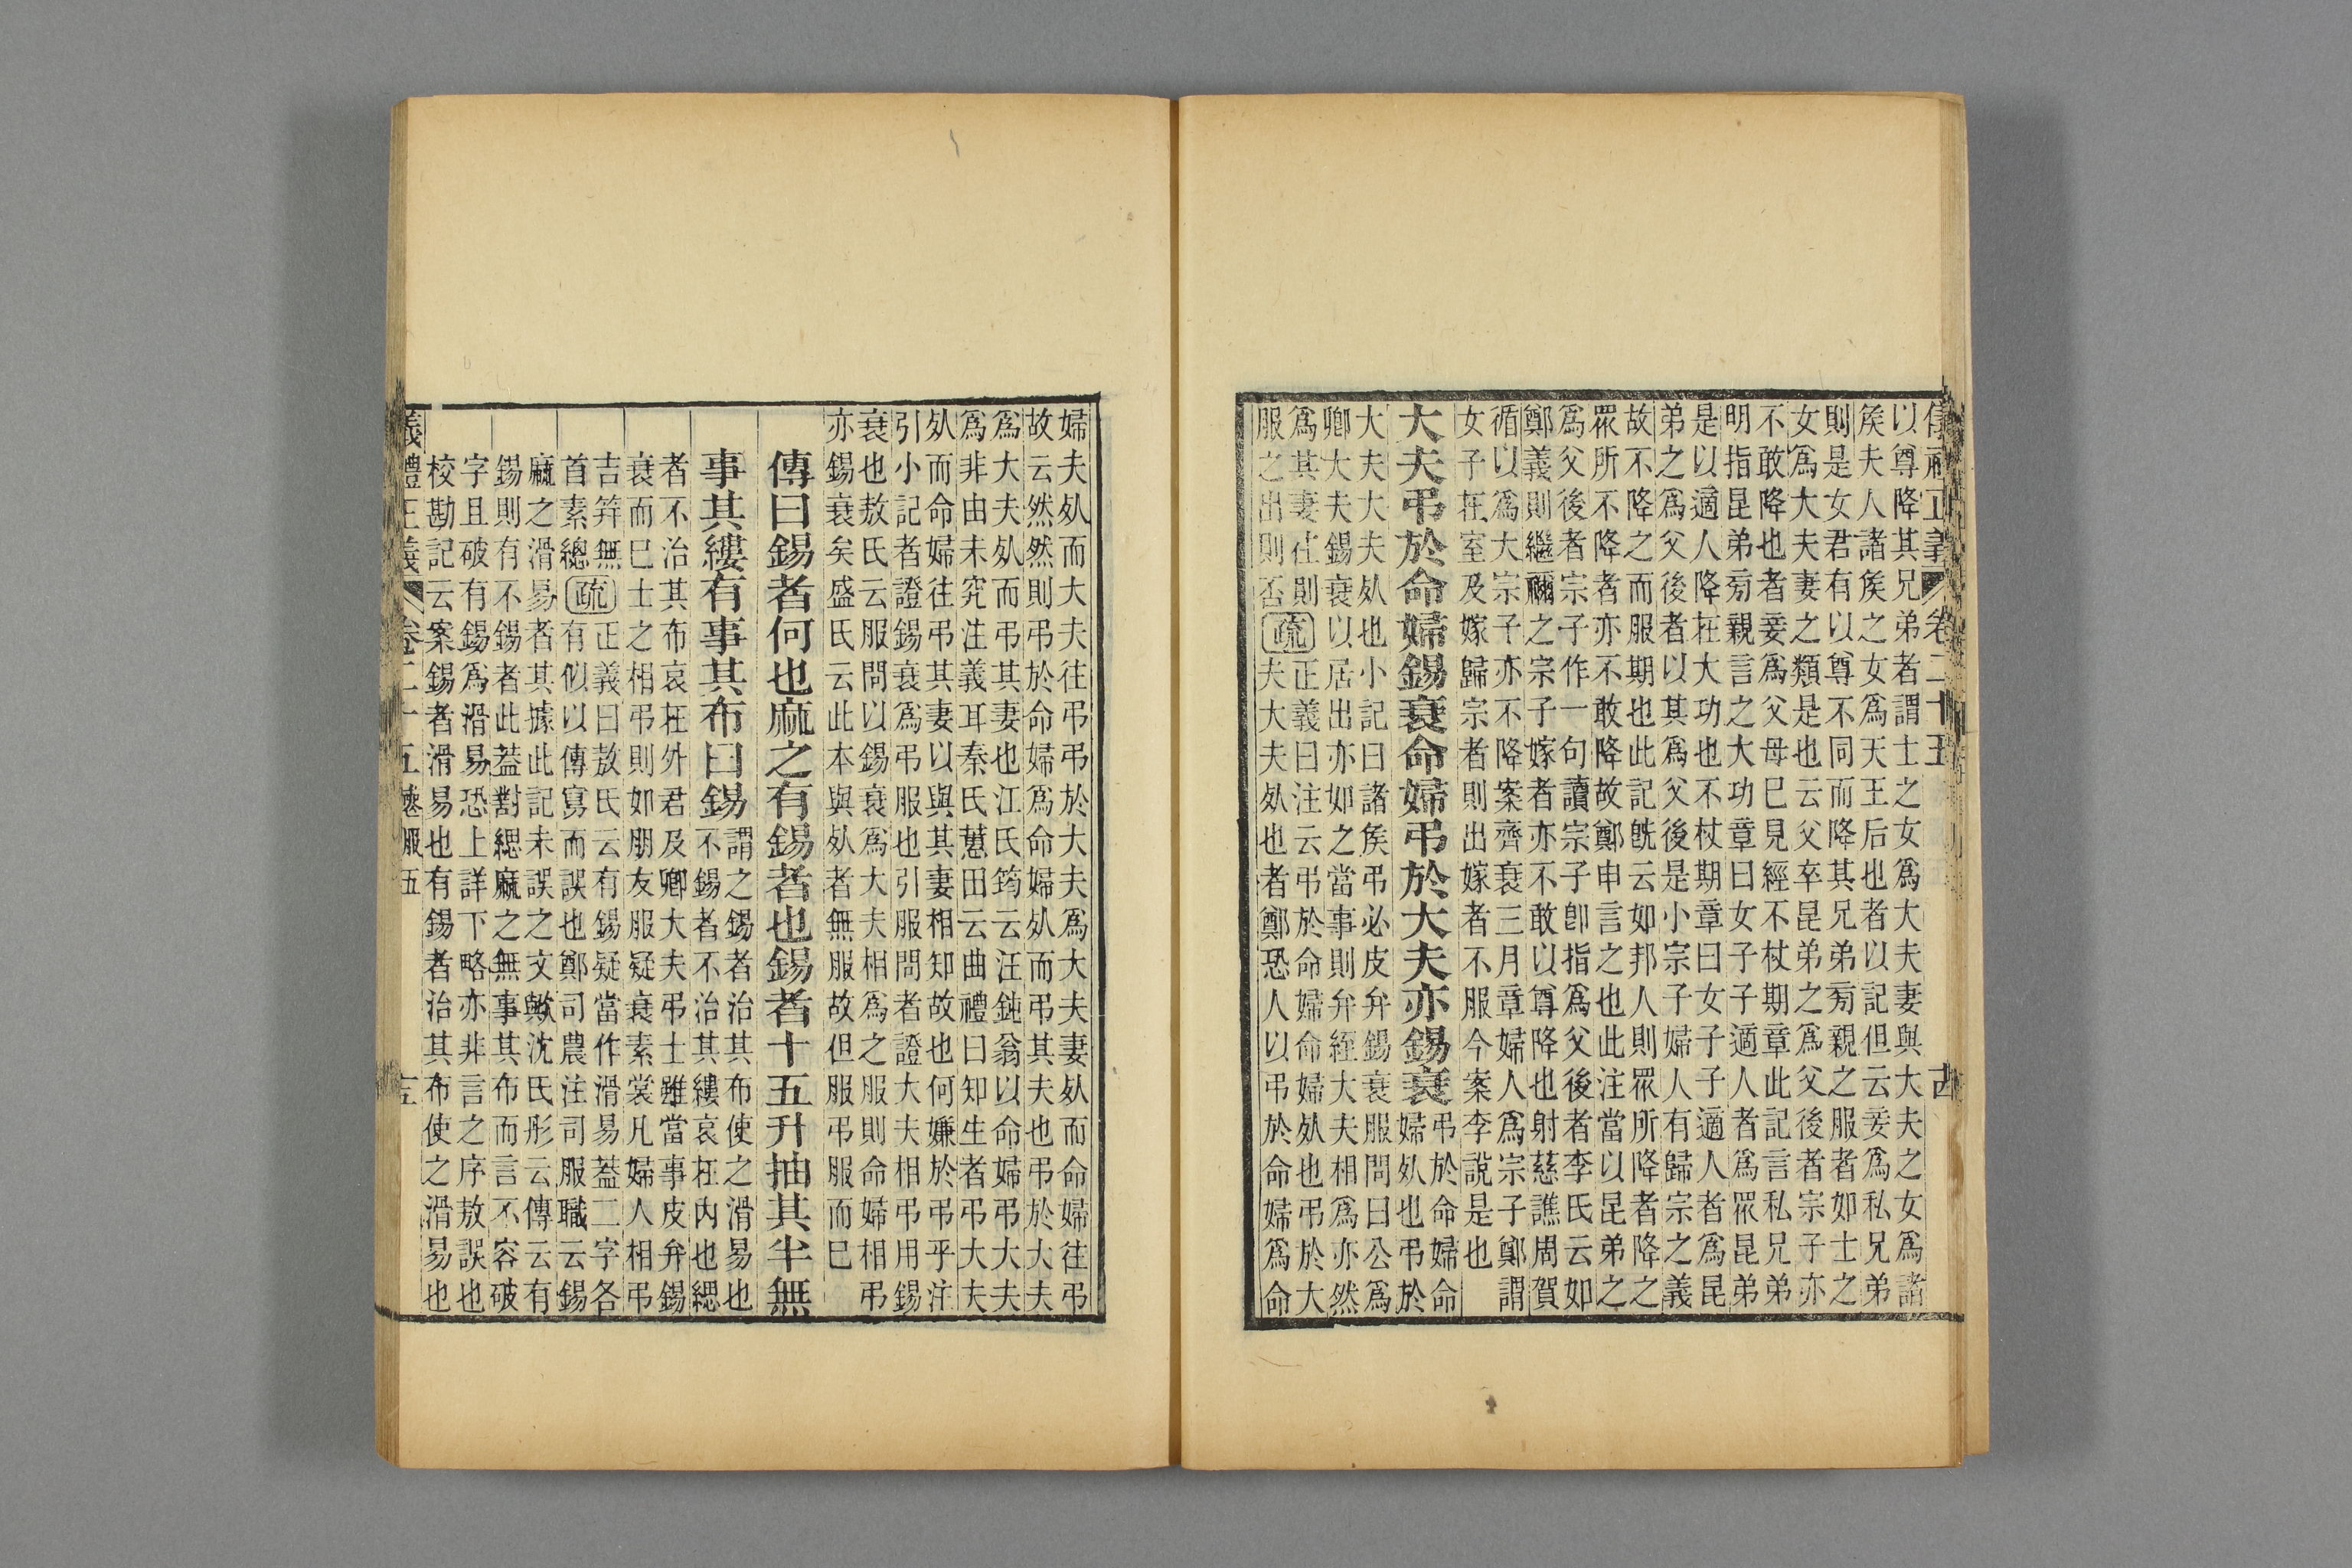 儀禮正義 卷二十五 古
以尊降其兄弟者謂士之女爲大夫妻與大夫之女爲諸
矦夫人諸矦之女爲天王后也者以記但云妾爲私兄弟
則是女君有以尊不同而降其兄弟㫄親之服者如士之
女爲大夫妻之類是也云父卒昆弟之爲父後者宗子亦
不敢降也者妾爲父母已見經不杖期章此記言私兄弟
明指昆弟㫄親言之大功章曰女子子適人者爲眾昆弟
是以適人降在大功也不杖期章曰女子子適人者爲昆
弟之爲父後者以其爲父後是小宗子婦人有歸宗之義
故不降之而服期也此記旣云如邦人則眾所降者降之
眾所不降者亦不敢降故鄭申言之也此注當以昆弟之
爲父後者宗子作一句讀宗子卽指爲父後者李氏云如
鄭義則繼禰之宗子嫁者亦不敢以尊降也射慈譙周賀
循以爲大宗子亦不降案齊衰三月章婦人爲宗子鄭謂
女子在室及嫁歸宗者則出嫁者不服今案李說是也
大夫弔於命婦錫衰命婦弔於大夫亦錫衰
弔於命婦命
婦𣦸也弔於
大夫大夫𣦸也小記曰諸矦弔必皮弁錫衰服問曰公爲
卿大夫錫衰以居出亦如之當事則弁絰大夫相爲亦然
爲其妻往則
服之出則否
疏
正義曰注云弔於命婦命婦𣦸也弔於大
夫大夫𣦸也者鄭恐人以弔於命婦爲命
婦夫𣦸而大夫往弔弔於大夫爲大夫妻𣦸而命婦往弔
故云然然則弔於命婦爲命婦𣦸而弔其夫也弔於大夫
爲大夫𣦸而弔其妻也江氏筠云汪鈍翁以命婦弔大夫
爲非由未究注義耳秦氏蕙田云曲禮曰知生者弔大夫
𣦸而命婦往弔其妻以與其妻相知故也何嫌於弔乎注
引小記者證錫衰爲弔服也引服問者證大夫相弔用錫
衰也敖氏云服問以錫衰爲大夫相爲之服則命婦相弔
亦錫衰矣盛氏云此本與𣦸者無服故但服弔服而已
傳曰錫者何也麻之有錫者也錫者十五升抽其半無
事其縷有事其布曰錫
謂之錫者治其布使之滑易也
不錫者不治其縷哀在內也緦
者不治其布哀在外君及卿大夫弔士雖當事皮弁錫
衰而已士之相弔則如朋友服疑衰素裳凡婦人相弔
吉笄無
首素總
疏
正義曰敖氏云有錫疑當作滑易蓋二字各
有似以傳寫而誤也鄭司農注司服職云錫
麻之滑易者其據此記未誤之文歟沈氏彤云傳云有
錫則有不錫者此蓋對緦麻之無事其布而言不容破
字且破有錫爲滑易恐上詳下略亦非言之序敖誤也
校勘記云案錫者滑易也有錫者治其布使之滑易也
禮正義 卷二十五 喪服五